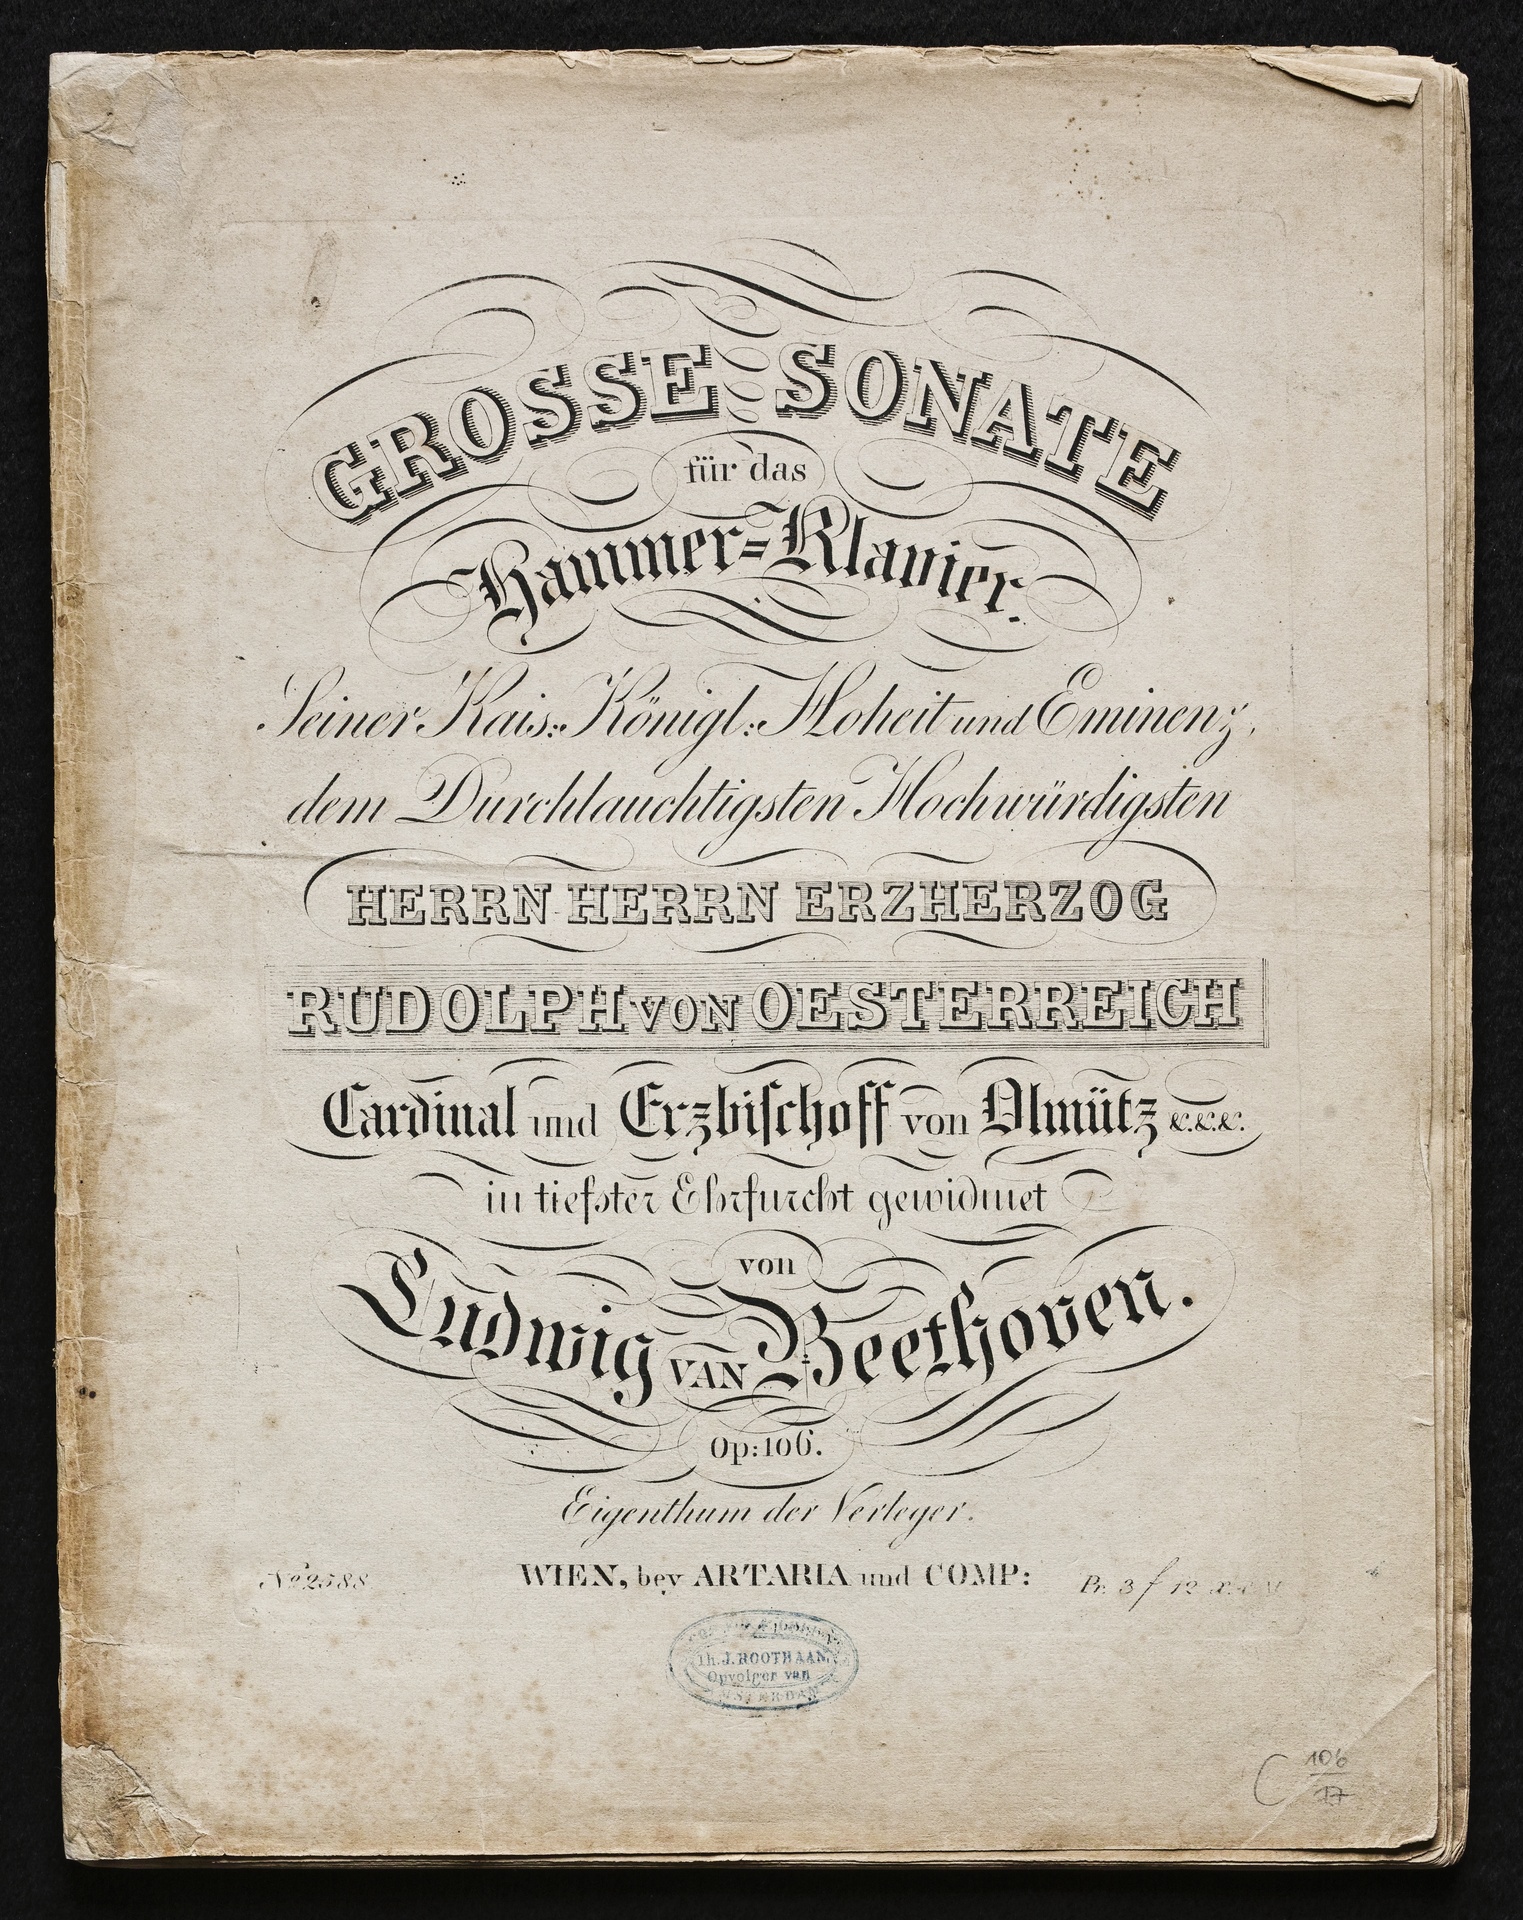 GROSSE SONATE
für das
Hammer=Klavier.
Seiner Kais: Königl: Hoheit und Eminenz,
dem Durchlauchtigsten Hochwürdigsten
HERRN HERRN ERZHERZOG
RUDOLPH VON OESTERREICH
Cardinal und Erzbischoff von Olmütz &.&.&.
in tiefster Ehrfurcht gewidmet
von
Ludwig VAN Beethoven.
Op: 106.
Eigenthum der Verleger.
No 2588
WIEN, bey ARTARIA und COMP:
Pr. 3 f 12
Th. J. ROOTHAAN,
Opvolger van
AMSTERDAM
C 106
17